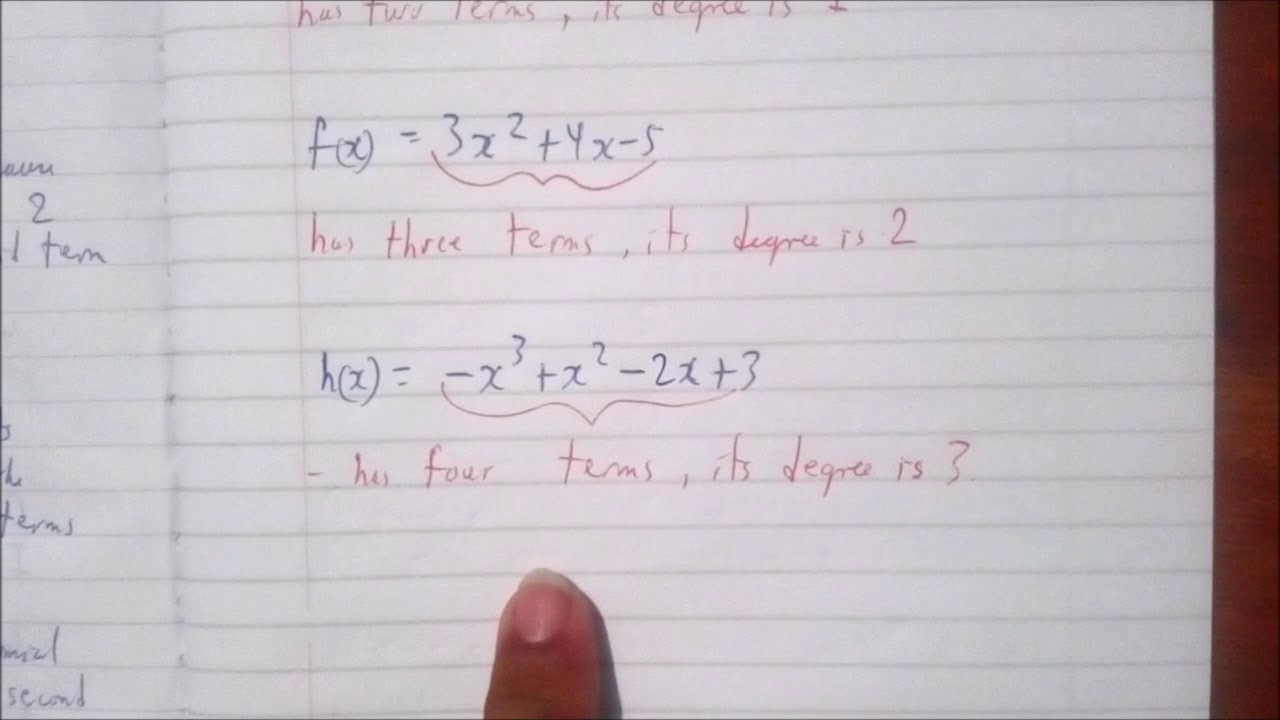 has two terms, its degree is 1
2
d term
f(x) = 3x² + 4x - 5
has three terms, its degree is 2
h(x) = -x³ + x² - 2x + 3
- has four terms, its degree is 3.
terms
second